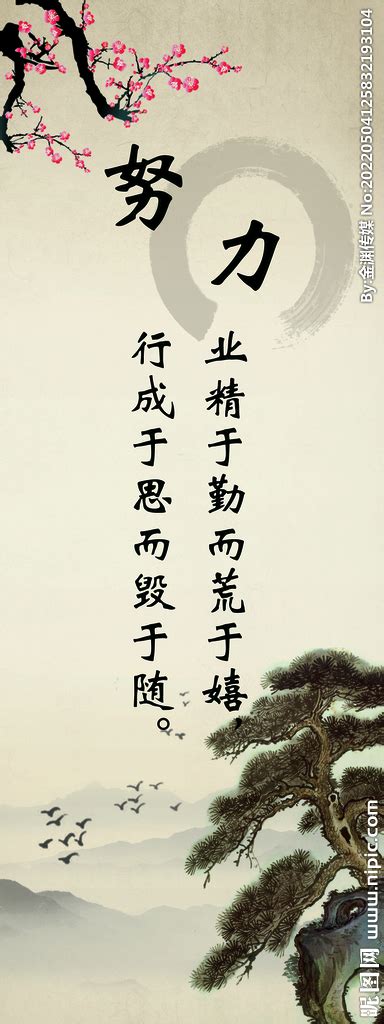 努力
业精于勤而荒于嬉,
行成于思而毁于随。
By:金渊传媒 No:20220504125832193104
昵图网 www.nipic.com